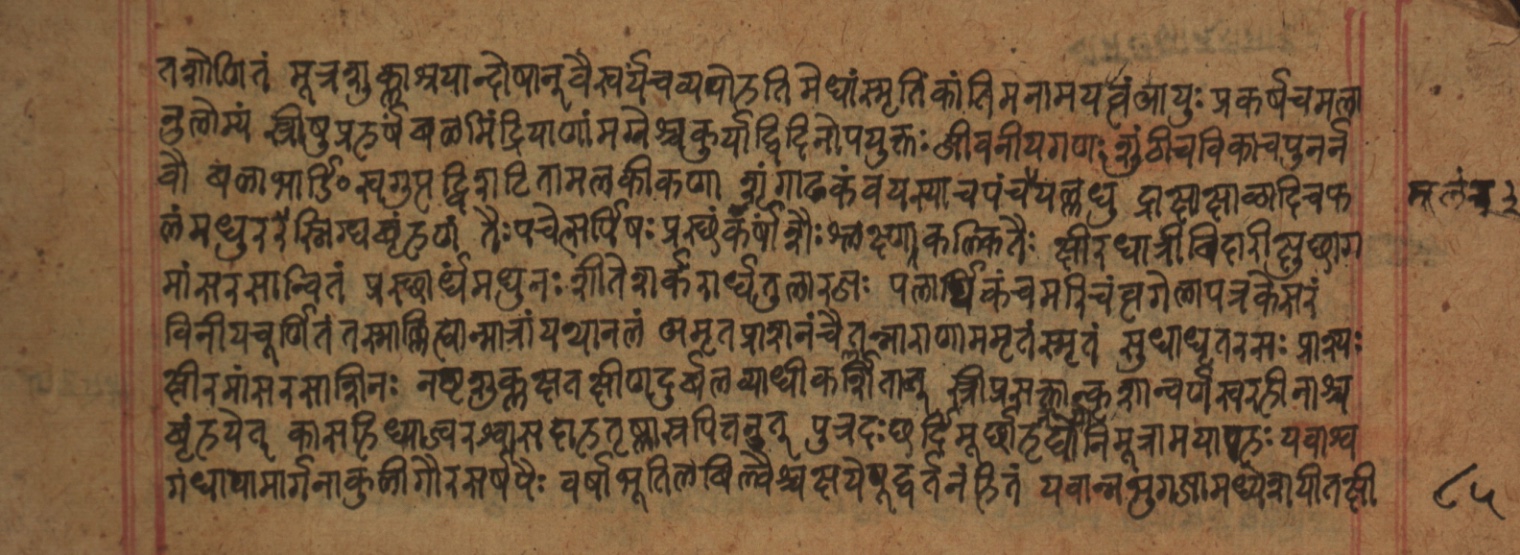 तशोणितं मूत्रशुक्लाश्रयान्दोषान् वैस्वर्यंचव्यपोहति मेधांस्मृतिं कांतिमनामयत्वंआयुः प्रकर्षंचमला
नुलोम्यं स्त्रीषुप्रहर्षंबळमिंद्रियाणांमग्नेश्चकुर्याद्विदिनोपयुक्तः जीवनीयगणः शुंठीचविकाचपुनर्न
वौ बळाभार्ङि॰स्वगुप्तद्विशटितामलकीकणा शृंगाढकंवयस्याचपंचैयल्लघु द्राक्षाक्षोळादिचफ
लंमधुररंस्निग्धबृंहणं तैःपचेत्सर्पिषः प्रस्थंकर्षांशौः श्लक्ष्णकल्कितैः क्षीरधात्रीविदारीक्षुछाग
मांसरसान्वितं प्रस्थार्धंमधुनः शीतेशर्करार्धतुलारजः पलार्धिकंचमरिचंत्वगेळापत्रकेसरं
विनीयचूर्णितंतस्माल्लिह्यान्मात्रांयथानलं अमृतप्राशनंचैतन्नाराणाममृतंस्मृतं सुधाधृतरसः प्राश्यः
क्षीरमांसरसाशिनः नष्टशुक्लक्षतक्षीणदुर्बलव्याधीकर्शितान् स्त्रीप्रसक्तान्कृशान्वर्णस्वरहीनाश्च
बृंहयेत् कासहिध्माज्वरश्वासदाहतृष्णास्रपित्तनुत् पुत्रदः छर्दिमूर्छाहृद्योनिमूत्रामयापहः यवाश्व
गंधापामार्गनाकुळीगौरसर्षपैः वर्षाभूतिलबिल्वैश्चक्षयेषूद्वर्तनंहितं यवान्नभुगजामध्येशयीतक्षी
८५